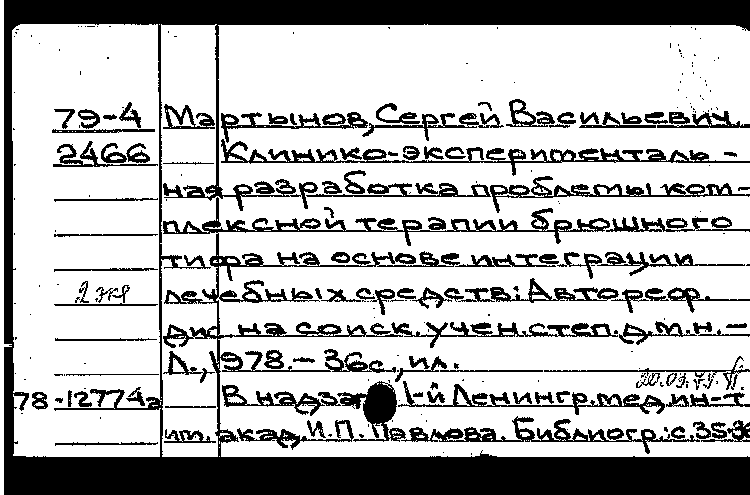 79-4 Мартынов, Сергей Васильевич.
2466 Клинико-эксперименталь-
ная разработка проблемы ком-
плексной терапии брюшного
тифа на основе интеграции
2 экз лечебных средств: Автореф.
дис. на соиск. учен. степ. д.м.н. -
Л., 1978. - 36с., ил.
78-12774а В надзаг. 1-й Ленингр. мед. ин-т
им. акад. И.П. Павлова. Библиогр.: с. 35-36